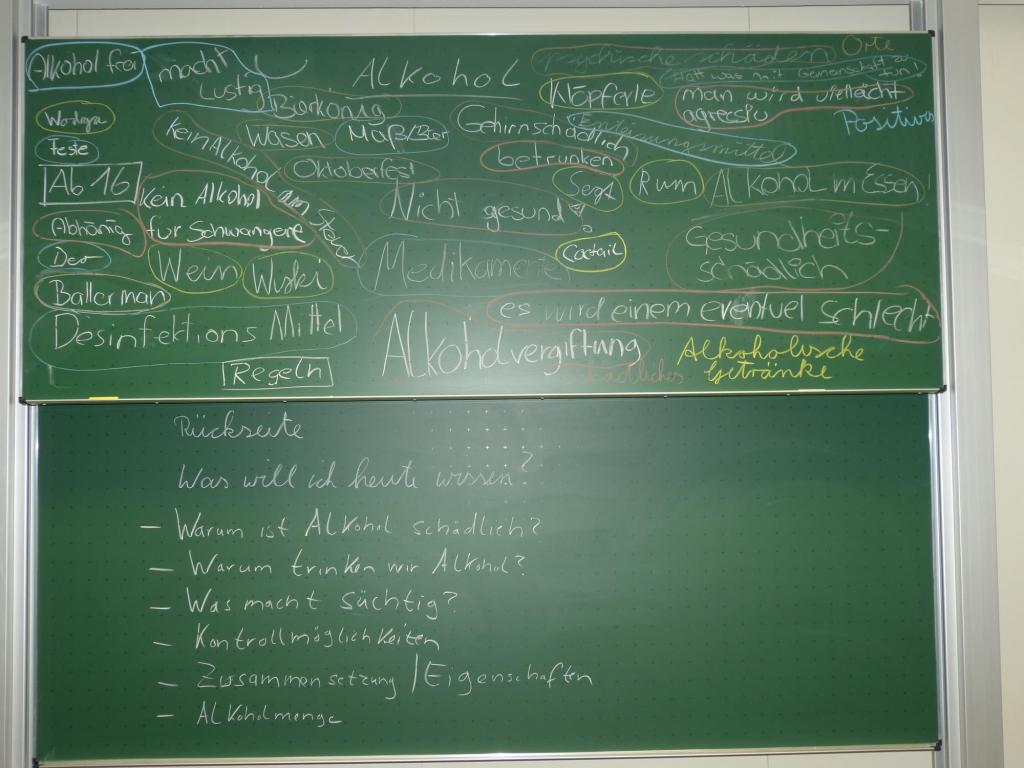 Alkohol frei
macht
Lustig
Alkohol
Psychische schäden
Orte
Bierkönig
Klöpferle
man wird vielleicht
agressiv
Positives
teste
Kein Alkohol am Steuer
Wasen
Maß/Bier
Gehirnschädlich
betrunken
Oktoberfest
Ab 16
Kein Alkohol
für Schwangere
Nicht gesund
Segt
Rum
Alkohol im Essen
Abhänig
Wein
Wiski
Medikamente
Coctail
Gesundheits-
schädlich
Ballerman
Desinfektions Mittel
Regeln
es wird einem eventuel schlecht
Alkoholvergiftung
Alkoholische
Getränke
Rückseite
Was will ich heute wissen?
– Warum ist Alkohol schädlich?
– Warum trinken wir Alkohol?
– Was macht süchtig?
– Kontrollmöglichkeiten
– Zusammensetzung / Eigenschaften
– Alkoholmenge